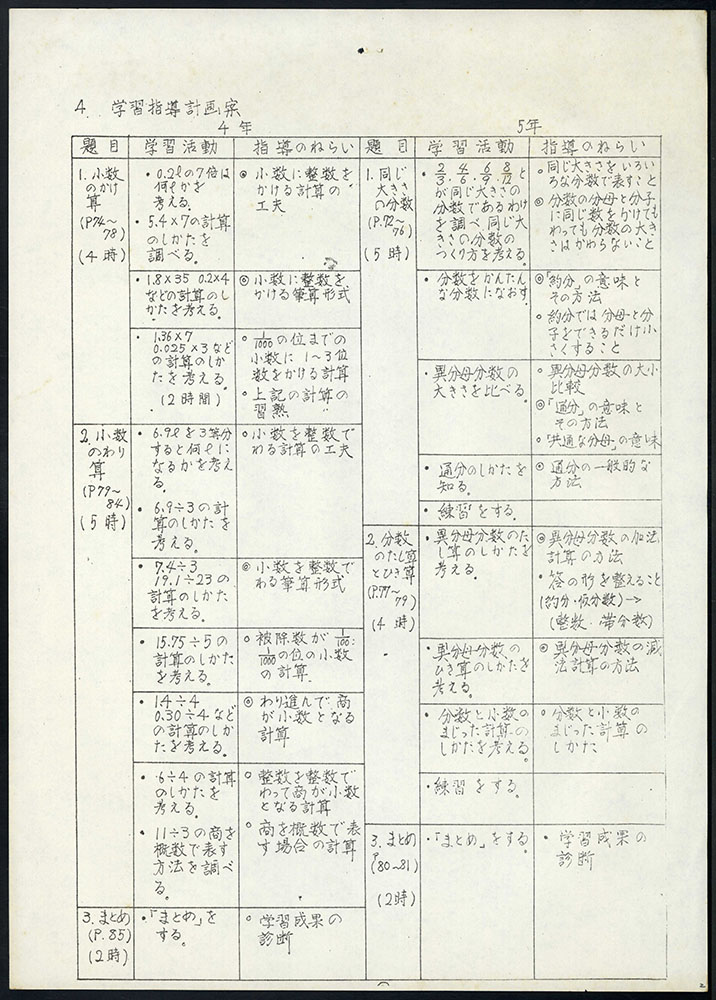 4. 学習指導計画案
4 年
題 目
学習活動
指導のねらい
1. 小数
のかけ
算
(P74〜
78)
(4 時)
・0.2ℓの7倍は
何ℓかを
考える。
・5.4×7の計算
のしかたを
調べる。
◎ 小数に整数を
かける計算の
工夫
・1.8×35 0.2×4
などの計算のし
かたを考える。
◎ 小数に整数を
かける筆算形式
・1.36×7
0.025×3など
の計算のしか
たを考える
(2時間)
○ 1/1000の位までの
小数に 1〜3位
数をかける計算
・上記の計算の
習熟
2. 小数
のわり
算
(P79〜
84)
(5 時)
・6.9ℓを3等分
すると何ℓに
なるかを考え
る。
・6.9÷3の計
算のしかたを
考える。
○ 小数を整数で
わる計算の工夫
・7.4÷3
19.1÷23の
計算のしかた
を考える。
◎ 小数を整数で
わる筆算形式
・15.75÷5の
計算のしかた
を考える。
○ 被除数が 1/100,
1/1000の位の小数
の計算
・1.4÷4
0.30÷4など
の計算のしか
たを考える。
◎ わり進んで、商
が小数となる
計算
・6÷4の計算
のしかたを
考える。
・11÷3の商を
概数で表す
方法を調べ
る。
○ 整数を整数で
わって商が小数
となる計算
○ 商を概数で表
す場合の計算
3. まとめ
(P.85)
(2時)
・「まとめ」を
する。
○ 学習成果の
診断
5年
題 目
学習活動
指導のねらい
1. 同じ
大きさ
の分数
(P.72〜
76)
(5 時)
・2/3, 4/6, 6/9, 8/12と
が同じ大きさの
分数であるわけ
を調べ、同じ大
きさの分数の
つくり方を考える。
○ 同じ大きさをいろい
ろな分数で表すこと
◎ 分数の分母と分子
に同じ数をかけても
わっても分数の大き
さはかわらないこと
・分数をかんたん
な分数になおす。
◎「約分」の意味と
その方法
・約分では分母と分
子をできるだけ小
さくすること
・異分母分数の
大きさを比べる。
・異分母分数の大小
比較
◎「通分」の意味と
その方法
・「共通な分母」の意味
・通分のしかたを
知る。
◎ 通分の一般的な
方法
・練習をする。
2. 分数
のたし算
とひき算
(P.77〜
79)
(4 時)
・異分母分数のた
し算のしかたを
考える。
◎ 異分母分数の加法
計算の方法
・答の形を整えること
(約分・仮分数)→
(整数・帯分数)
・異分母分数の
ひき算のしかたを
考える。
◎ 異分母分数の減
法計算の方法
・分数と小数の
まじった計算の
しかたを考える。
○ 分数と小数の
まじった計算の
しかた
・練習をする。
3. まとめ
P
(80〜81)
(2時)
・「まとめ」をする。
・学習成果の
診断